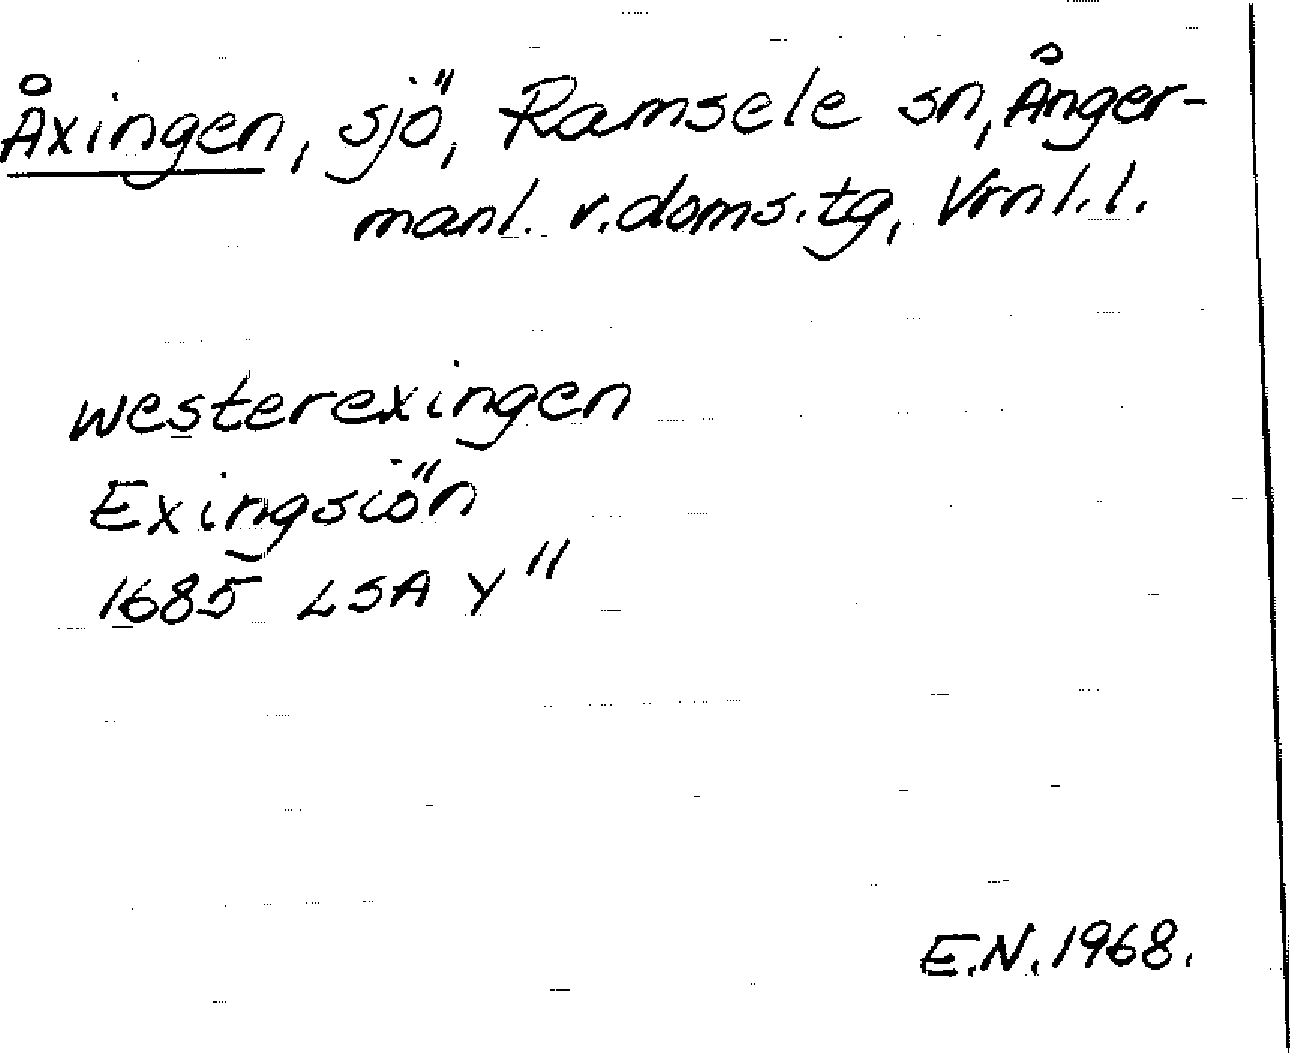 Åxingen, sjö, Ramsele sn, Ånger-
manl. v. doms. tg, Vrnl. l.
westerexingen
Exingsiön
1685 LSA Y"
E.N. 1968.